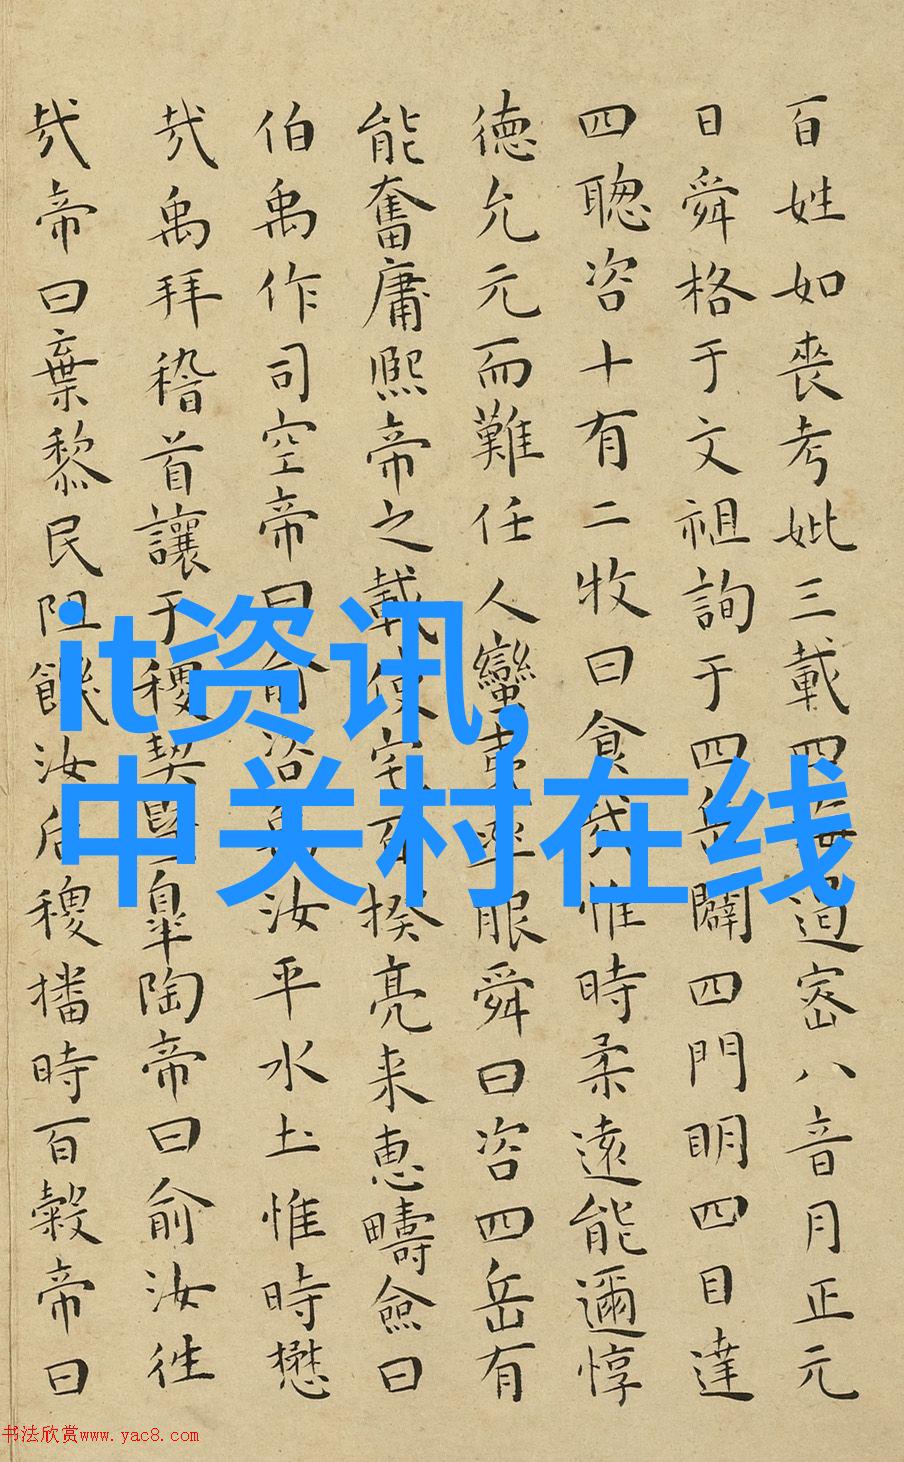 百姓如喪考妣三載四海遏密八音月正元
日舜格于文祖詢于四岳闢四門明四目達
四聦咨十有二牧曰食哉惟時柔遠能邇惇
徳允元而難任人蠻夷率服舜曰咨四岳有
能奮庸熈帝之載使宅百揆亮来恵疇僉曰
伯禹作司空帝曰俞咨禹汝平水土惟時懋
哉禹拜稽首讓于稷契暨皐陶帝曰俞汝往
哉帝曰棄黎民阻饑汝后稷播時百穀帝曰
it资讯,
中关村在线
书法欣赏www.yac8.com